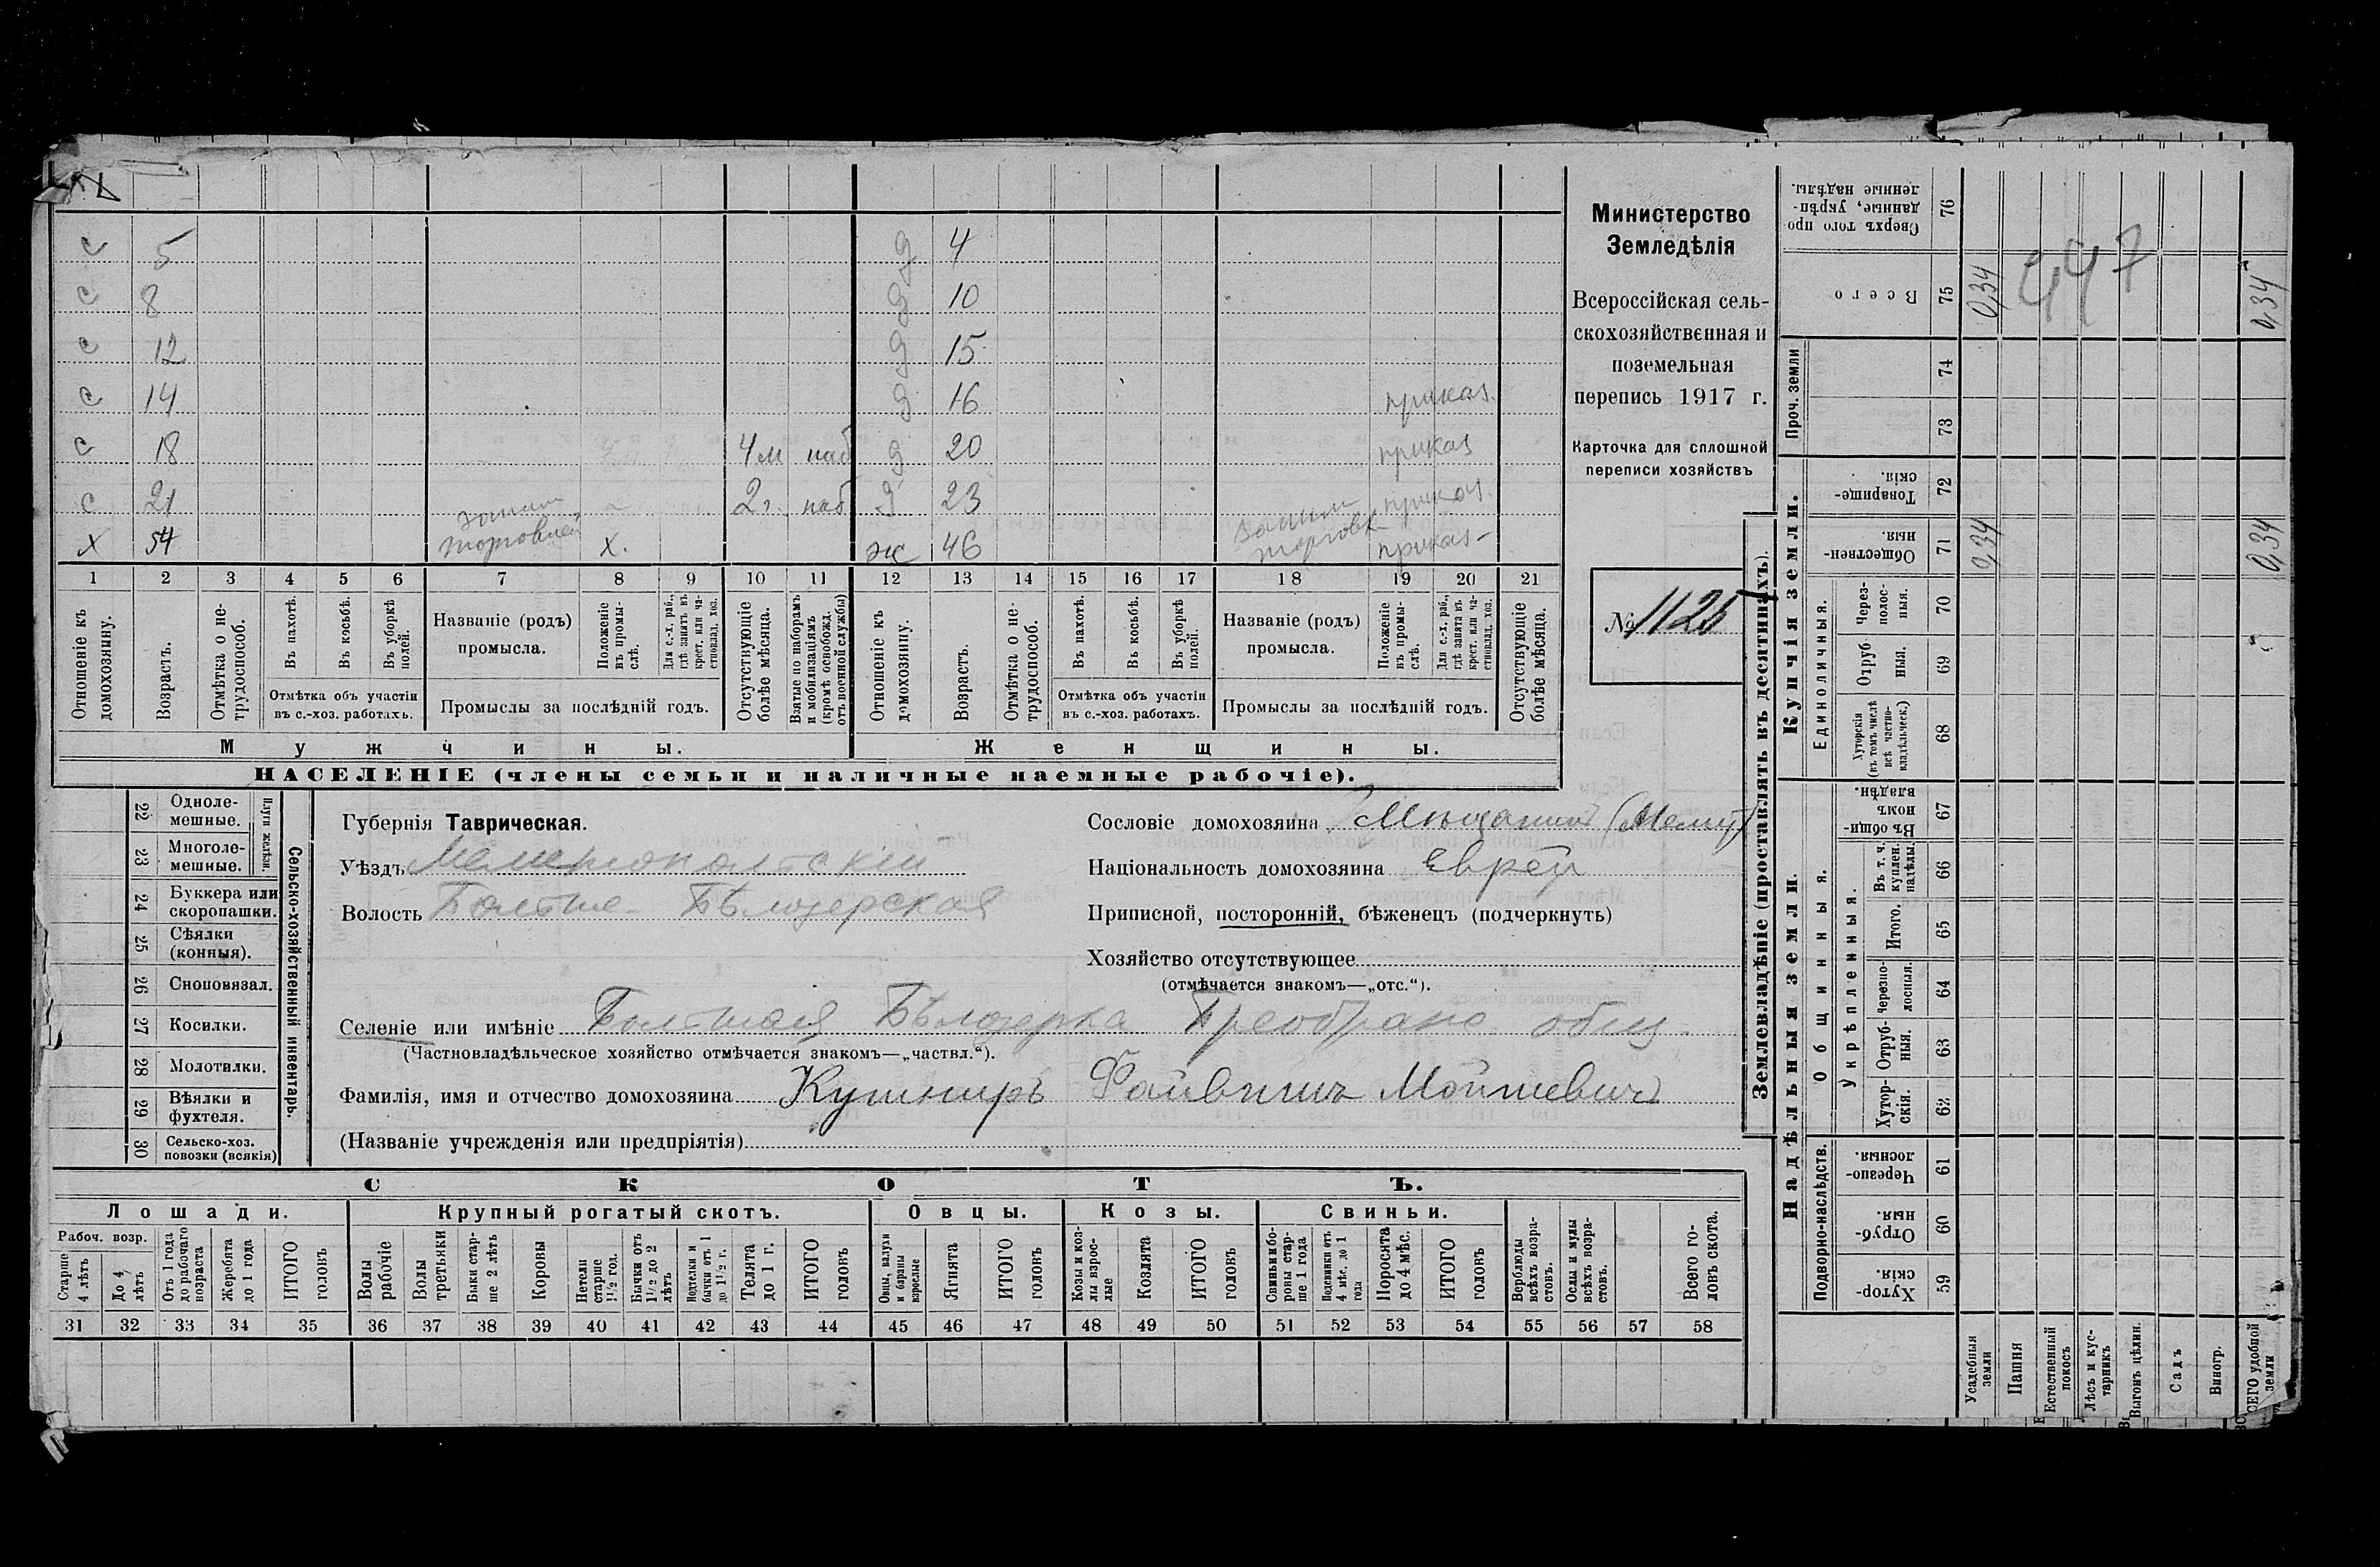 с 5 4
с 8 10
с 12 15
с 14 16 приказ.
с 18 4 м наб 9 20 приказ
с 21 2 г. наб 23 приказ.
х 54 торговлей х. ж 46 приказ
1 2 3 4 5 6 7 8 9 10 11 12 13 14 15 16 17 18 19 20 21
Отношеніе къ домохозяину.
Возрастъ.
Отмѣтка о не-трудоспособ.
Въ пахотѣ.
Въ косьбѣ.
Въ уборкѣ полей.
Отмѣтка объ участіи
въ с.-хоз. работахъ.
Названіе (родъ)
промысла.
Положеніе въ промы-слѣ.
Для с.-х. раб., гдѣ занятъ въ крест. или ча-стновлад. хоз.
Промыслы за послѣдній годъ.
Отсутствующіе болѣе мѣсяца.
Взятые по наборамъ и мобилизаціямъ (кромѣ освобожд. отъ военной службы)
Отношеніе къ домохозяину.
Возрастъ.
Отмѣтка о не-трудоспособ.
Въ пахотѣ.
Въ косьбѣ.
Въ уборкѣ полей.
Отмѣтка объ участіи
въ с.-хоз. работахъ.
Названіе (родъ)
промысла.
Положеніе въ промы-слѣ.
Для с.-х. раб., гдѣ занята въ крест. или ча-стновлад. хоз.
Промыслы за послѣдній годъ.
Отсутствующіе болѣе мѣсяца.
Мужчины. Женщины.
НАСЕЛЕНІЕ (члены семьи и наличные наемные рабочіе).
Министерство
Земледѣлія
Всероссійская сель-
скохозяйственная и
поземельная
перепись 1917 г.
Карточка для сплошной
переписи хозяйствъ
№ 1125
22 Одноле-мешные.
23 Многоле-мешные.
Плуги желѣзн.
24 Буккера или скоропашки.
25 Сѣялки (конныя).
26 Сноповязал.
27 Косилки.
28 Молотилки.
29 Вѣялки и фухтеля.
30 Сельско-хоз. повозки (всякія)
Сельско-хозяйственный инвентарь.
Губернія Таврическая.
Уѣздъ Мелитопольскій
Волость Больше-Бѣлозерская
Сословіе домохозяина Мѣщанинъ
Національность домохозяина Еврей
Приписной, посторонній, бѣженецъ (подчеркнуть)
Хозяйство отсутствующее
(отмѣчается знакомъ—„отс.“).
Селеніе или имѣніе Большая Бѣлозерка Преображ. общ.
(Частновладѣльческое хозяйство отмѣчается знакомъ—„частвл.“).
Фамилія, имя и отчество домохозяина Кушниръ Файвишъ Мойшевичъ
(Названіе учрежденія или предпріятія)
СКОТЪ.
Лошади. Крупный рогатый скотъ. Овцы. Козы. Свиньи.
Рабоч. возр.
Старше 4 лѣтъ
До 4 лѣтъ
Отъ 1 года до рабочаго возраста
Жеребята до 1 года
ИТОГО головъ
Волы рабочіе
Волы третьяки
Быки стар-ше 2 лѣтъ
Коровы
Нетели старше 1½ год.
Бычки отъ 1½ до 2 лѣтъ
Нетелки и бычки отъ 1 до 1½ г.
Телята до 1 г.
ИТОГО головъ
Овцы, валухи и бараны взрослые
Ягнята
ИТОГО головъ
Козы и коз-лы взрос-лые
Козлята
ИТОГО головъ
Свиньи и бо-ровы стар-ше 1 года
Подсвинки отъ 4 мѣс. до 1 года
Поросята до 4 мѣс.
ИТОГО головъ
Верблюды всѣхъ возра-стовъ.
Ослы и мулы всѣхъ возра-стовъ.
Всего го-ловъ скота.
31 32 33 34 35 36 37 38 39 40 41 42 43 44 45 46 47 48 49 50 51 52 53 54 55 56 57 58
Землевладѣніе (проставлять въ десятинахъ).
Надѣльныя земли.
Купчія земли.
Проч. земли
Подворно-наслѣдств.
Общинныя.
Укрѣпленныя.
Единоличныя.
59 Хутор-скія.
60 Отруб-ныя.
61 Черезпо-лосныя.
62 Хутор-скія.
63 Отруб-ныя.
64 Черезпо-лосныя.
65 Итого.
66 Въ т. ч. куплен. надѣлы.
67 Въ общи-номъ владѣн.
68 Хуторскія (въ томъ числѣ всѣ частно-владѣльческ.)
69 Отруб-ныя.
70 Через-полос-ныя.
71 Обществен-ныя. 0,34 0,34
72 Товарище-скія.
73
74
75 Всего 0,34 0,34
76 Сверхъ того про-данные, укрѣп-ленные надѣлы.
447
Усадебныя земли
Пашня
Естественный покосъ
Лѣсъ и кус-тарникъ
Выгонъ цѣлин.
Садъ
Виногр.
ВСЕГО удобной земли